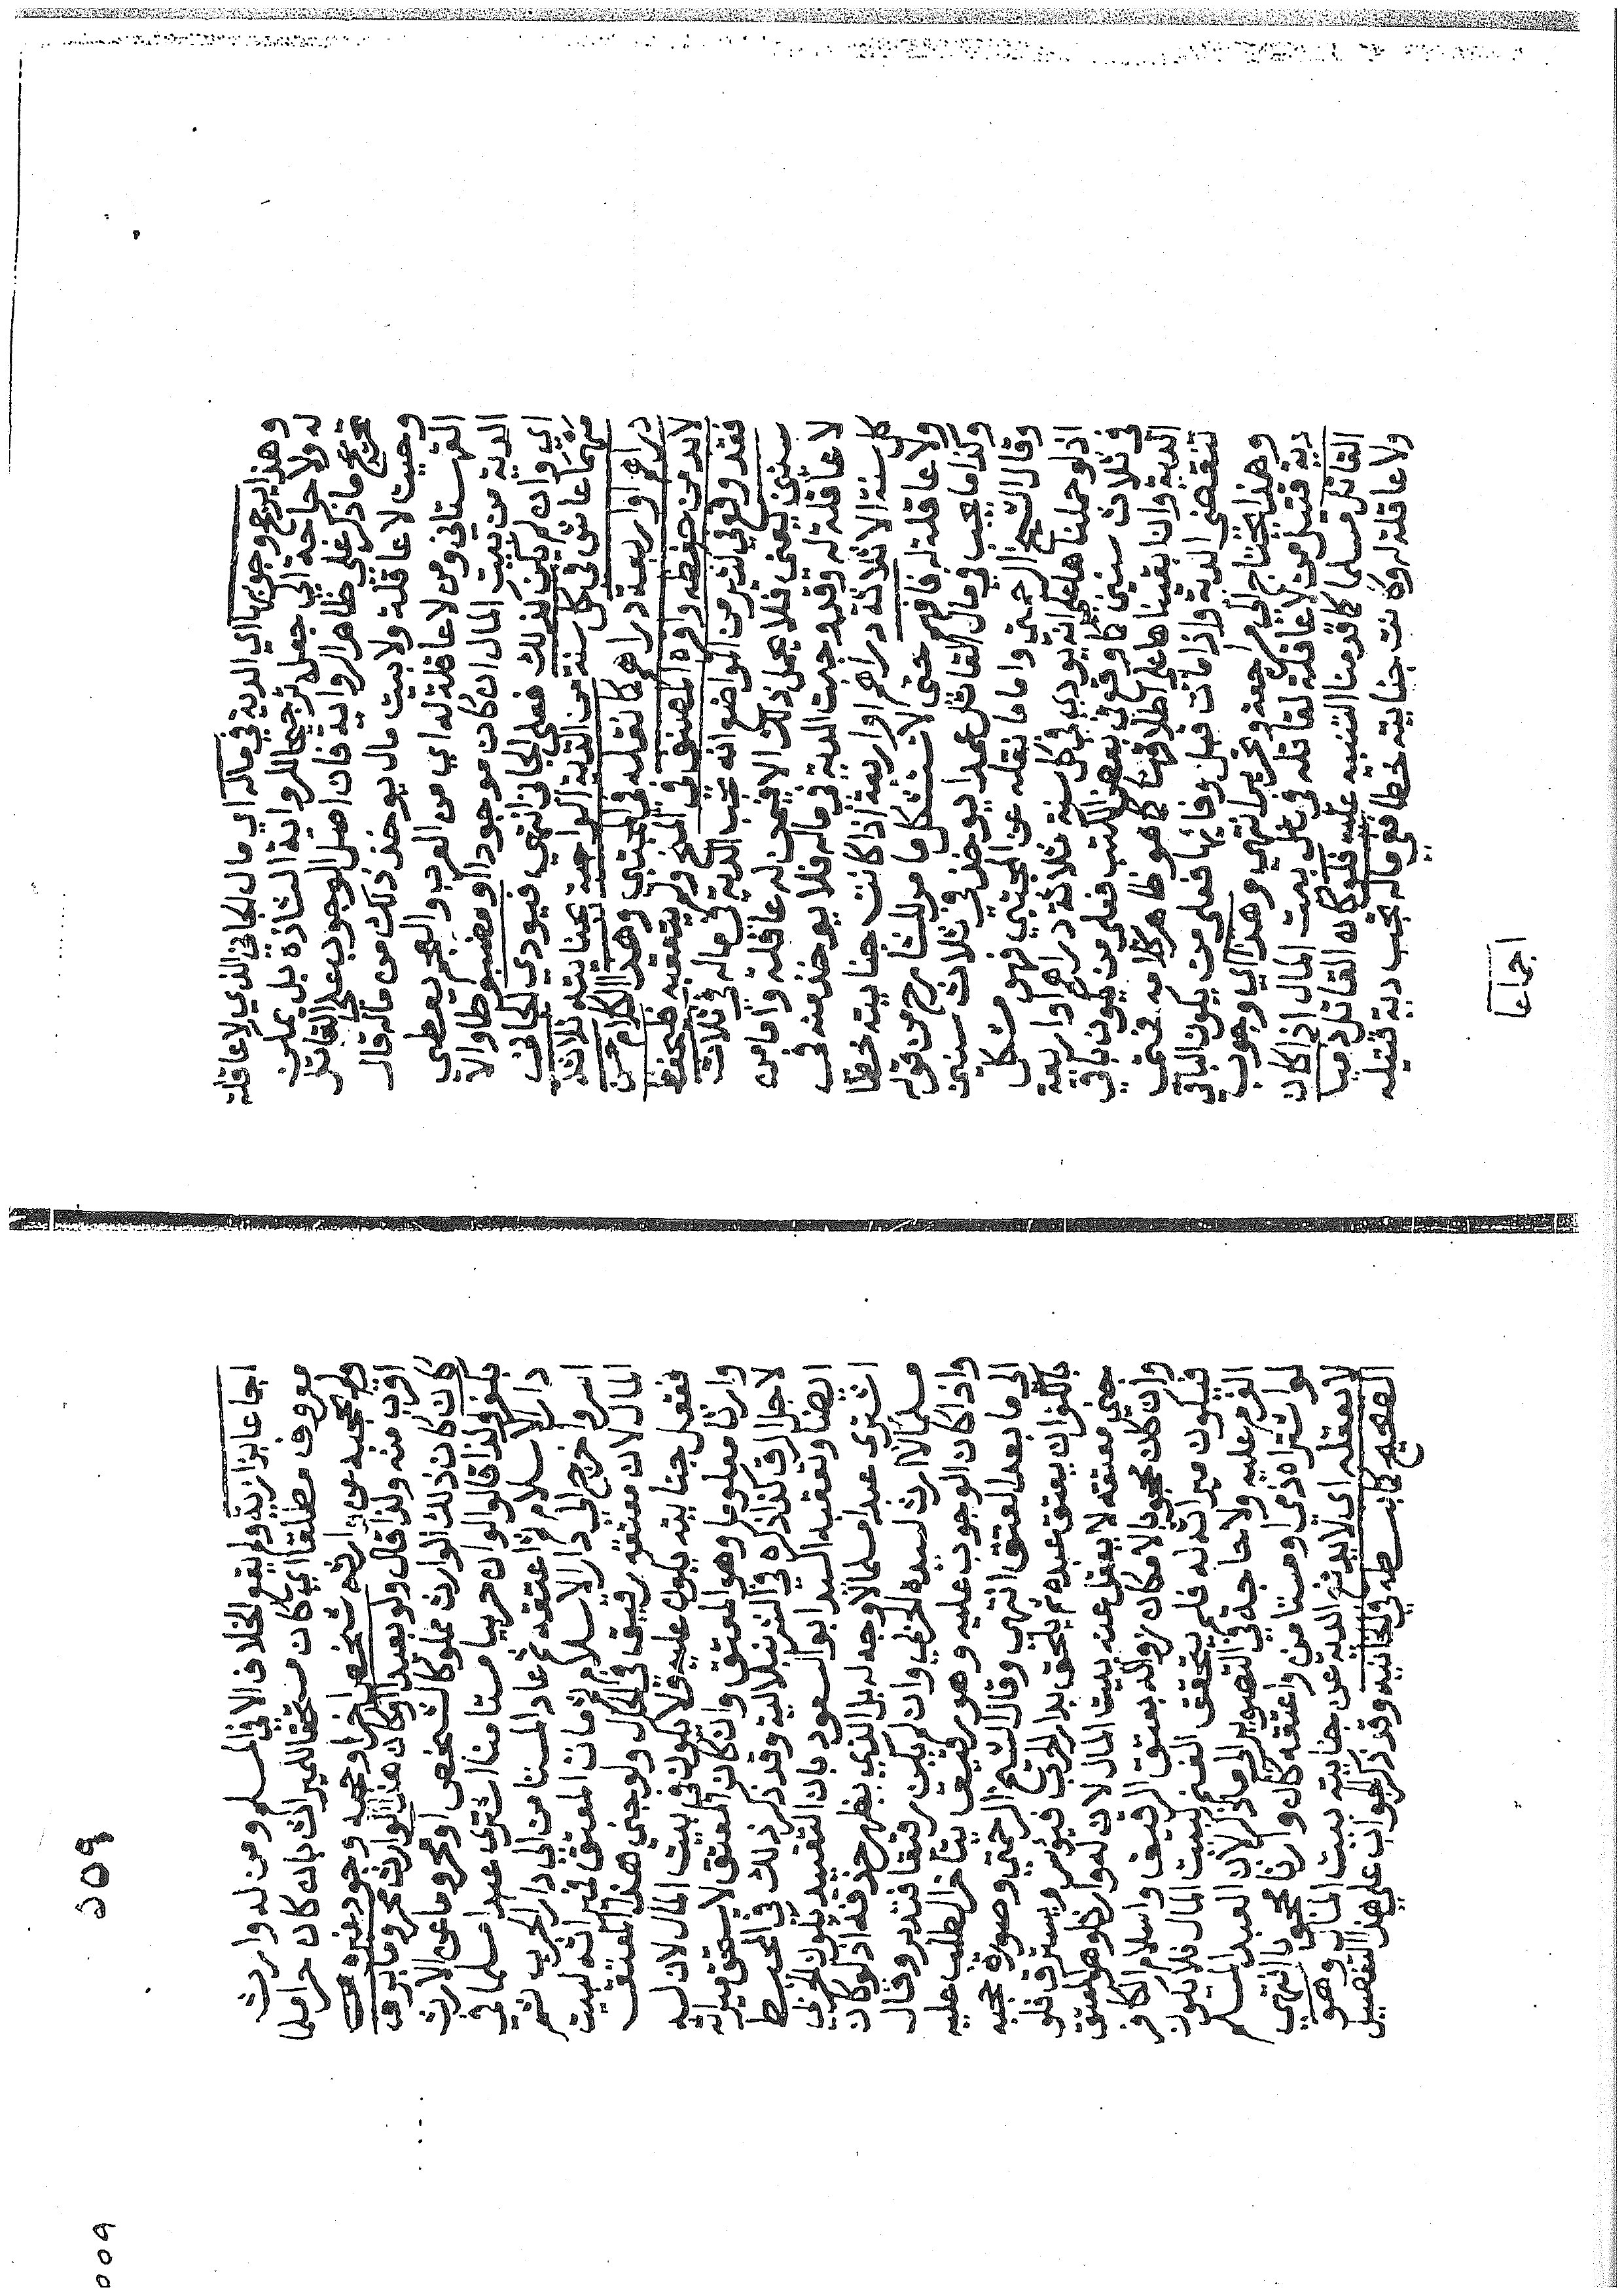 وهذا يرجح وجوبها اي الدية في ماله اي مال الجاني الذي لا عاقلة
له ولا حاجة الي جعل ترجيحا للرواية الشاذة بل يمكن
تخريج ما ذكر علي ظاهر الرواية فان اصل الوجوب علي القاتل
وحيث لا عاقلة ولا بيت مال يوخذ ذلك من ماله قال
القهستاني ومن لا عاقلة له اي من العرب والعجم يعطي
الدية من بيت المال ان كان موجودا او مضبوطا والا
اي وان لم يكن كذلك فعلي الجاني انتهي فيودي الجاني
مهما عاش في كل سنة من الدية الواجبة بجنايته ثلاثة
دراهم او اربعة دراهم كما نقله في المجتبي وهذا الكلام حسن
لا بد من حفظه واقره المصنف في المنح ولم يتعقبه فليحفظ
فقد وقع في كثير من المواضع انه يجب الدية في ماله في ثلاث
سنين يعني فلا يحمل ذلك الا فيمن له عاقلة واما من
لا عاقلة له وقد وجبت الدية في ماله فلا يوخذ منه في
كل سنة الا ثلاثة دراهم او اربعة اذا كانت جنايته خطا
ولا عاقلة له فافهم حتي لا تستشكل ما مر للشارح من قوله
وكذا ما يجب في مال القاتل عمدا يوخذ في ثلاث سنين
وقال الشيخ الرحمتي واما ما نقله عن المجتبي فهو مشكل
اذ لو حملناها علي انه يودي في كل سنة ثلاثة دراهم او اربعة
في ثلاث سنين كما وقع في بعض الكتب فعلي من يكون باقي
الدية وان ابقيناها علي اطلاقها كما هو ظاهر كلامه فمتي
تنقضي الدية واذا مات قبل وفائها فعلي من يكون الباقي
وهذا يحتاج الي مراجعة وتحرير انتهي وهذا اي وجوب
دية قتيل من لا عاقلة لقاتله في بيت المال اذا كان
القاتل مسلما كما قدمنا التنبيه عليه فلو كان القاتل ذميا
ولا عاقلة له وكانت جنايته خطا ففي ماله تجب دية قتيله
اجماعا
اجماعا بزازية ولم يقع الخلاف الا في المسلم ومن له وارث
معروف مطلقا اي كان مستحقا للميراث بان كان حرا مسلما
ولم يحجبه عن ارثه شخص اخر او حجبه وجود غيره
اقرب منه ولذا قال ولو بعيدا او كان هذا الوارث محروما برق
كان كان ذلك الوارث مملوكا لشخص او محروما عن الارث
بكفر ولذا قالوا لو ان حربيا مستامنا اشتري عبدا مسلما في
دار الاسلام ثم اعتقه ثم عاد المستامن الي دار الحرب ثم
اسر واخرج الي دار الاسلام ثم مات المعتق فميراثه لبيت
المال لان معتقه رقيق في الحال ولو جني هذا المعتق
فعقل جنايته يكون عليه ولا يكون في بيت المال لان له
وارثا معلوما وهو المعتق وان كان المعتق لا يستحق ميراثه
لاجل الرق كذا ذكره في الشرنبلالية وقد ذكر ذلك في المحيط
ايضا وتعقبه السيد ابو السعود بان التقييد بكون الحربي
اشتري عبدا مسلما لا وجه له بل الذي يظهر حذفه اذ لو كان
مسلما لا ارث لسيده الحربي وان لم يكن رقيقا فتدبر وقال
واذا كان الوجوب عليه وهو رقيق يتاخر الطلب عليه
الي ما بعد العتق انتهي وقال الشيخ الرحمتي وصورة حجبه
بالكفر ان يعتق عبده ثم يلحق بدار الحرب فيؤسر ويسترق فلو
جني معتقه لا يعقل عنه بيت المال لان له وارثا وهو المعتق
وان كان محجوبا لامكان زواله بعتق الرقيق واسلام الكافر
فيكون ميراثه له فلم يتحقق الغنم لبيت المال فلا يكون
الغرم عليه ولا حاجة في التصوير الي ما ذكر لان العبد المسلم
لو اشتراه ذمي او مستامن واعتقه كان وارثا محجوبا انتهي
لا يعقله اي لا يورث الدية عن جنايته بيت المال وهو
الصحيح كما بسطه في الخانية وقد ذكر الجواب علي هذا التفصيل